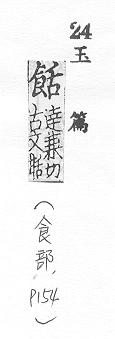 '24
玉篇
餂
達兼切
古文甛
(食部, P154)